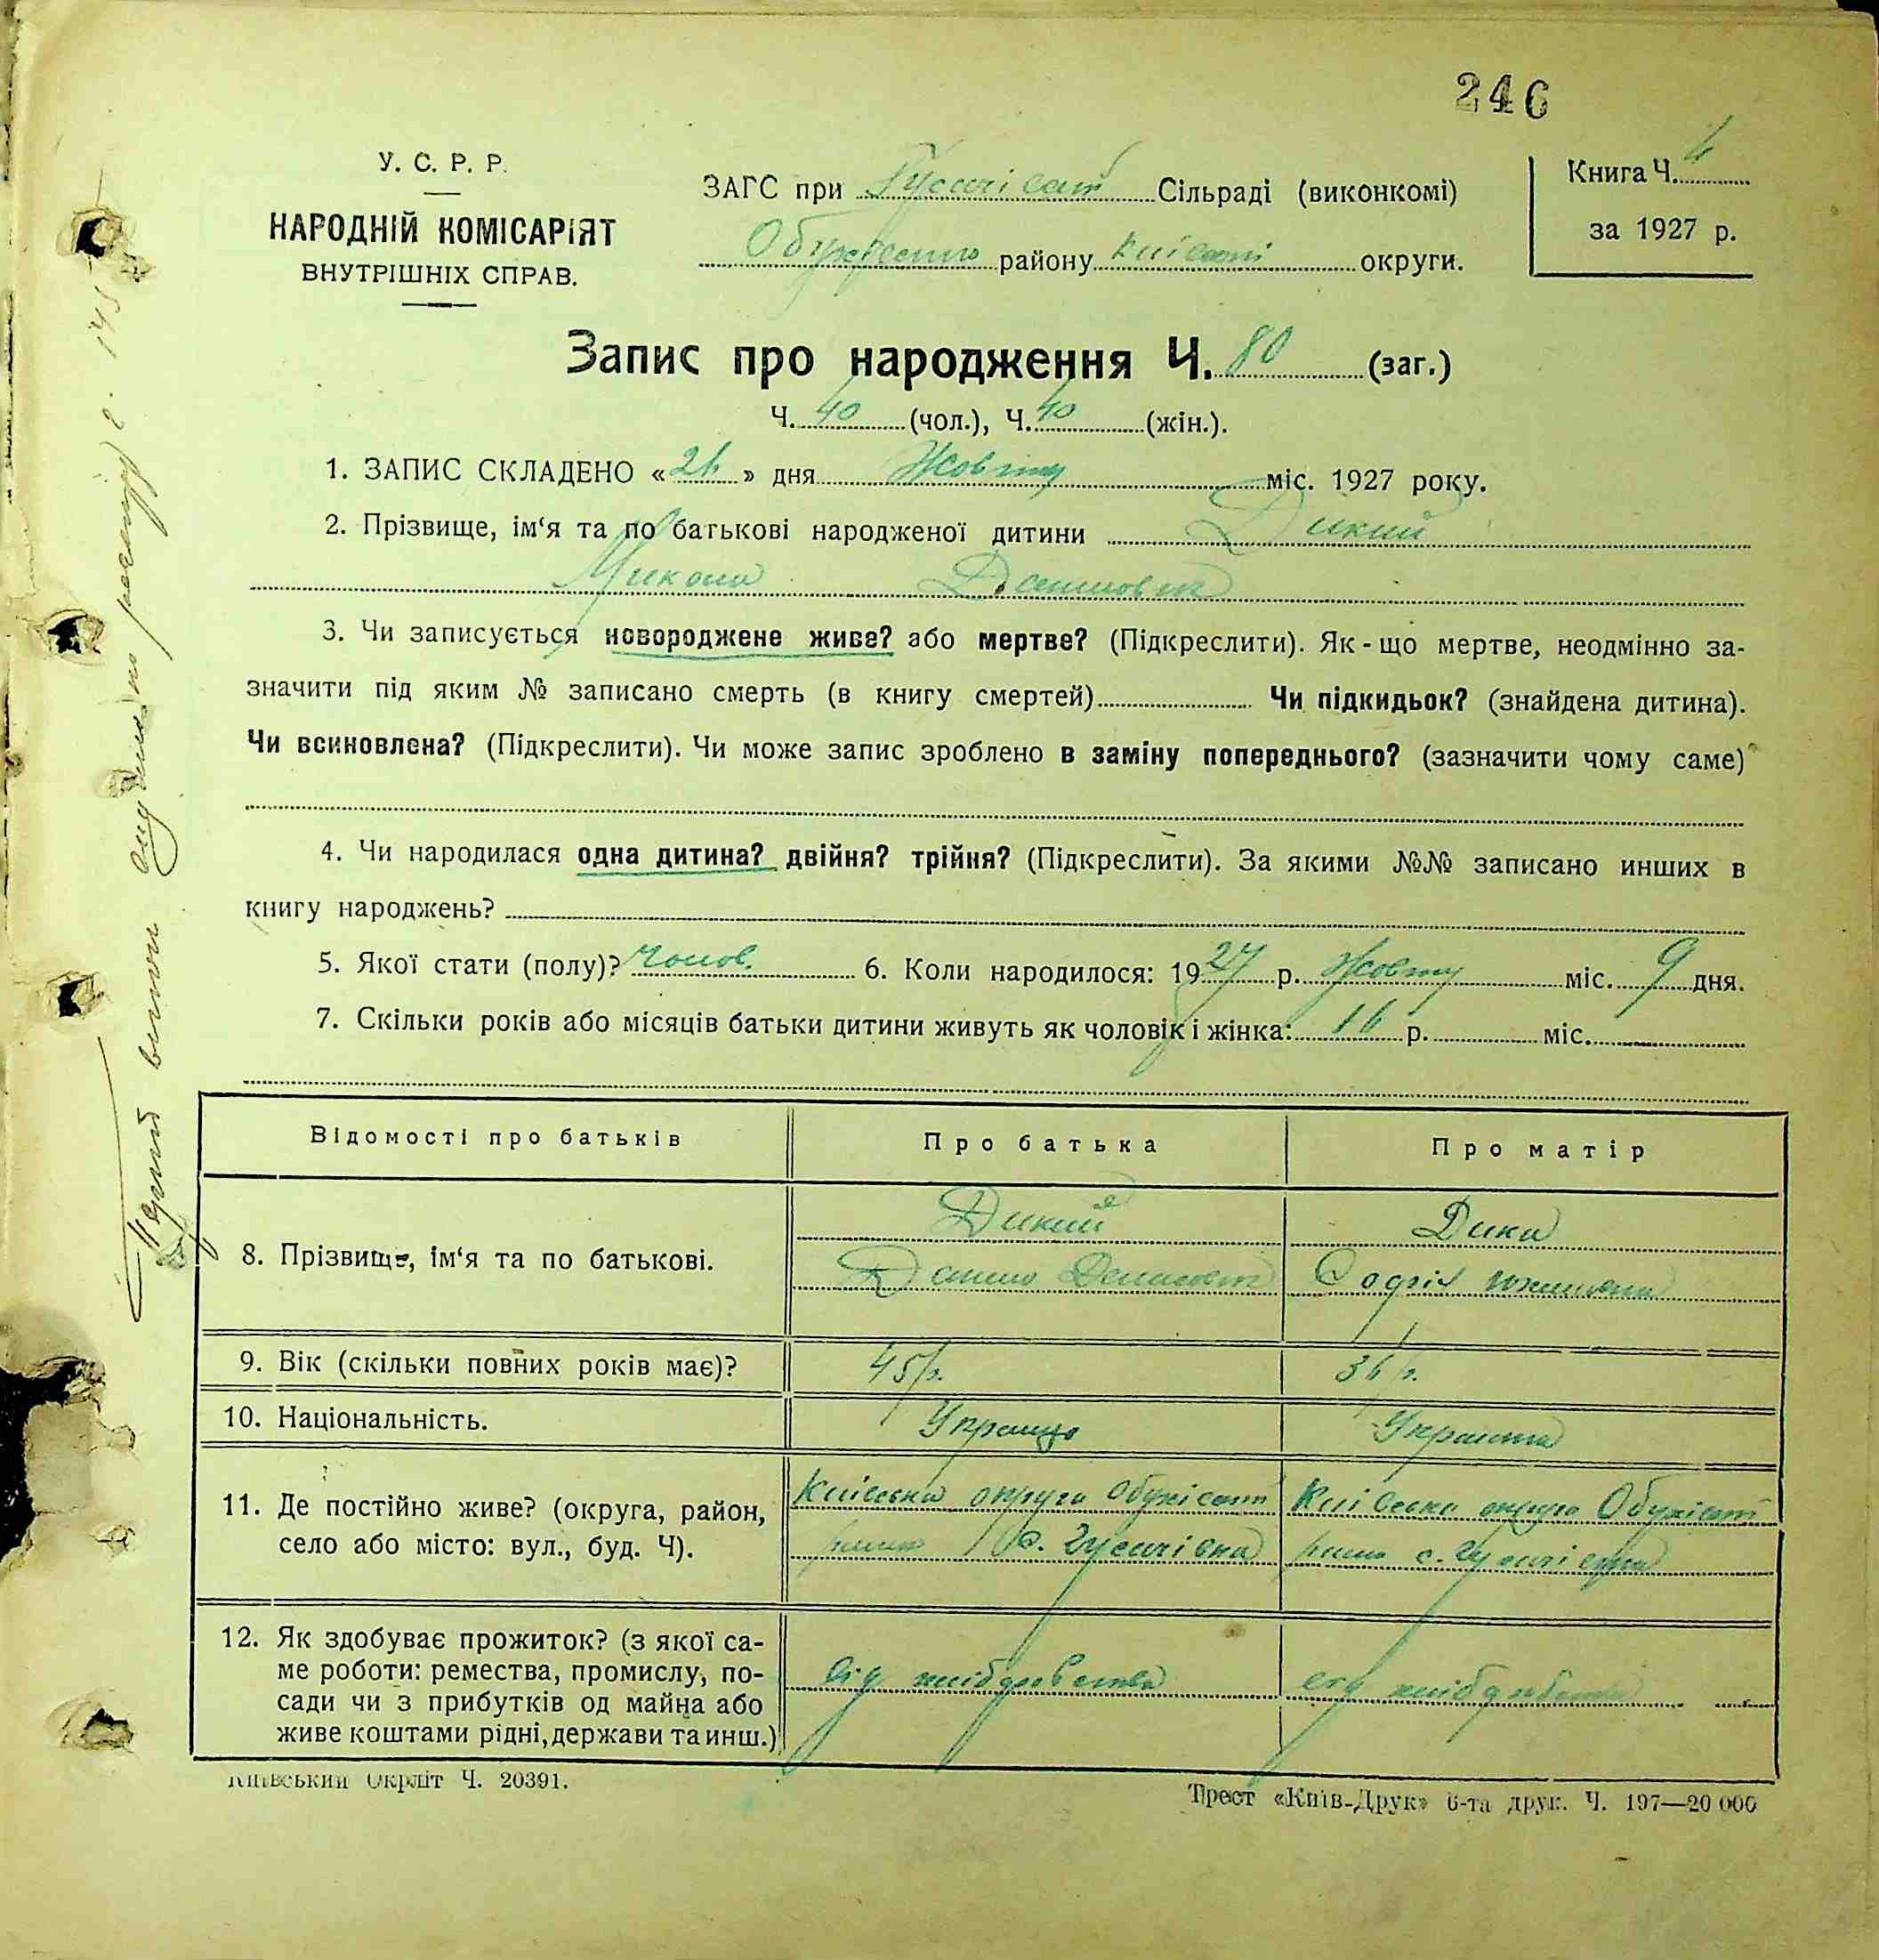 246
У. С. Р. Р.
НАРОДНІЙ КОМІСАРІЯТ
ВНУТРІШНІХ СПРАВ.
ЗАГС при Гусачівськ Сільраді (виконкомі)
району Київської округи.
Книга Ч. 4
за 1927 р.
Запис про народження Ч. 80 (заг.)
Ч. 40 (чол.), Ч. 40 (жін.).
1. ЗАПИС СКЛАДЕНО «26» дня Жовтня міс. 1927 року.
2. Прізвище, ім‘я та по батькові народженої дитини Дикий
Микола
3. Чи записується новороджене живе? або мертве? (Підкреслити). Як-що мертве, неодмінно за-
значити під яким № записано смерть (в книгу смертей) Чи підкидьок? (знайдена дитина).
Чи всиновлена? (Підкреслити). Чи може запис зроблено в заміну попереднього? (зазначити чому саме)
4. Чи народилася одна дитина? двійня? трійня? (Підкреслити). За якими №№ записано инших в
книгу народжень?
5. Якої стати (полу)? Чолов. 6. Коли народилося: 1927 р. Жовтня міс. 9 дня.
7. Скільки років або місяців батьки дитини живуть як чоловік і жінка: 16 р. міс.
Відомості про батьків Про батька Про матір
8. Прізвище, ім‘я та по батькові.
Дикий
Данило Денисович
Дика
Софія
9. Вік (скільки повних років має)? 45 р. 36 р.
10. Національність. Українцр Українка
11. Де постійно живе? (округа, район,
село або місто: вул., буд. Ч).
Київська округа Обухівськ
район с. Гусачівка
Київська округа Обухівськ
район с. Гусачівка
12. Як здобуває прожиток? (з якої са-
ме роботи: ремества, промислу, по-
сади чи з прибутків од майна або
живе коштами рідні, держави та инш.)
від хлібдробства
від хлібдробства
Київський Окрліт Ч. 20391.
Трест «Київ-Друк» 6-та друк. Ч. 197—20 000